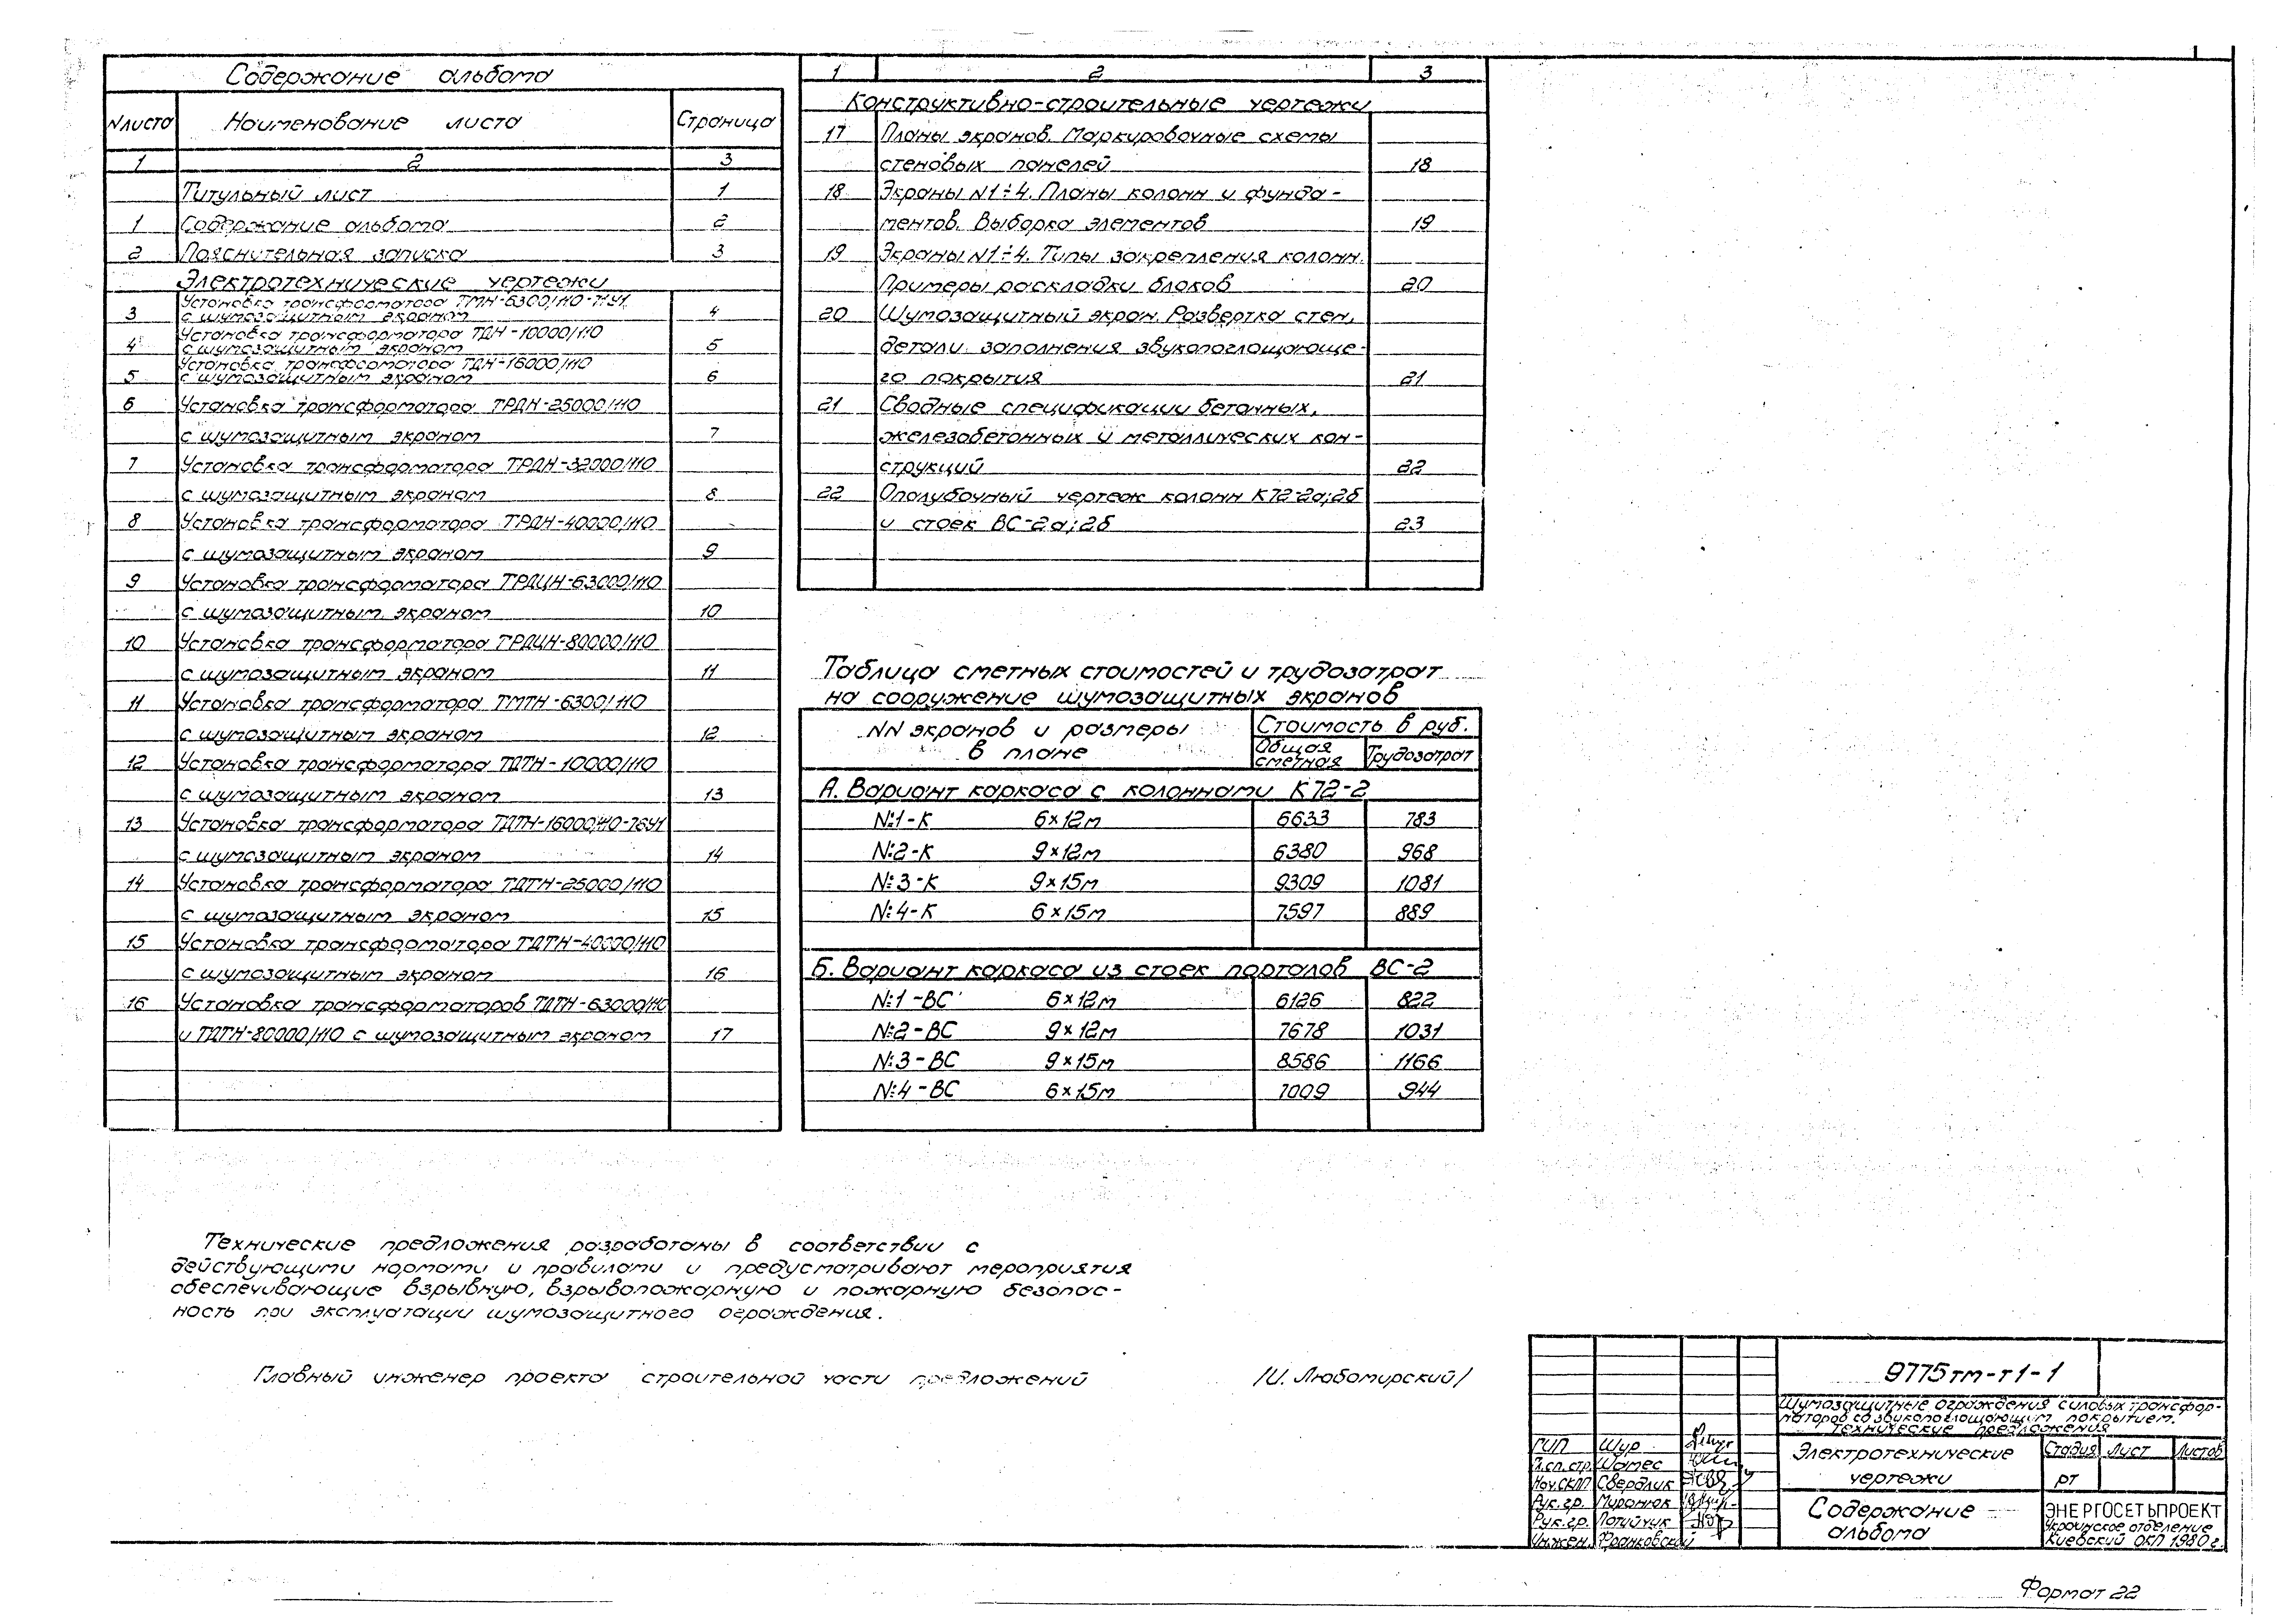 Содержание альбома
N листа Наименование листа Страница
1 2 3
Титульный лист 1
1 Содержание альбома 2
2 Пояснительная записка 3
Электротехнические чертежи
Установка трансформатора ТМН-6300/110-71У1
3 с шумозащитным экраном 4
Установка трансформатора ТДН-10000/110
4 с шумозащитным экраном 5
Установка трансформатора ТДН-16000/110
5 с шумозащитным экраном 6
6 Установка трансформатора ТРДН-25000/110
с шумозащитным экраном 7
7 Установка трансформатора ТРДН-32000/110
с шумозащитным экраном 8
8 Установка трансформатора ТРДН-40000/110
с шумозащитным экраном 9
9 Установка трансформатора ТРДЦН-63000/110
с шумозащитным экраном 10
10 Установка трансформатора ТРДЦН-80000/110
с шумозащитным экраном 11
11 Установка трансформатора ТМТН-6300/110
с шумозащитным экраном 12
12 Установка трансформатора ТДТН-10000/110
с шумозащитным экраном 13
13 Установка трансформатора ТДТН-16000/110-76У1
с шумозащитным экраном 14
14 Установка трансформатора ТДТН-25000/110
с шумозащитным экраном 15
15 Установка трансформатора ТДТН-40000/110
с шумозащитным экраном 16
16 Установка трансформаторов ТДТН-63000/110
и ТДТН-80000/110 с шумозащитным экраном 17
1 2 3
Конструктивно-строительные чертежи
17 Планы экранов. Маркировочные схемы
стеновых панелей 18
18 Экраны N1÷4. Планы колонн и фунда-
ментов. Выборка элементов 19
19 Экраны N1÷4. Типы закрепления колонн.
Примеры раскладки блоков 20
20 Шумозащитный экран. Развертка стен,
детали заполнения звукопоглощающе-
го покрытия 21
21 Сводные спецификации бетонных,
железобетонных и металлических кон-
струкций 22
22 Опалубочный чертеж колонн К72-2а;2б
и стоек ВС-2а;2б 23
Таблица сметных стоимостей и трудозатрат
на сооружение шумозащитных экранов
NN экранов и размеры в плане Стоимость в руб.
Общая сметная Трудозатрат
А. Вариант каркаса с колоннами К72-2
№1-К 6×12м 6633 783
№2-К 9×12м 6380 968
№3-К 9×15м 9309 1081
№4-К 6×15м 7597 889
Б. Вариант каркаса из стоек порталов ВС-2
№1-ВС 6×12м 6126 822
№2-ВС 9×12м 7678 1031
№3-ВС 9×15м 8586 1166
№4-ВС 6×15м 7009 944
Технические предложения разработаны в соответствии с
действующими нормами и правилами и предусматривают мероприятия
обеспечивающие взрывную, взрывопожарную и пожарную безопас-
ность при эксплуатации шумозащитного ограждения.
Главный инженер проекта строительной части предложений /И. Любомирский/
9775тм-т1-1
Шумозащитные ограждения силовых трансфор-
маторов со звукопоглощающим покрытием.
Технические предложения
ГИП Шур
Гл.сп.стр. Шамес
Нач.СКПП Свердлик
Рук.гр. Миранюк
Рук.гр.
Инжен.
Электротехнические чертежи
Стадия Лист Листов
РТ
Содержание альбома
ЭНЕРГОСЕТЬПРОЕКТ
Украинское отделение
Киевский ОКП 1980г.
Формат 22